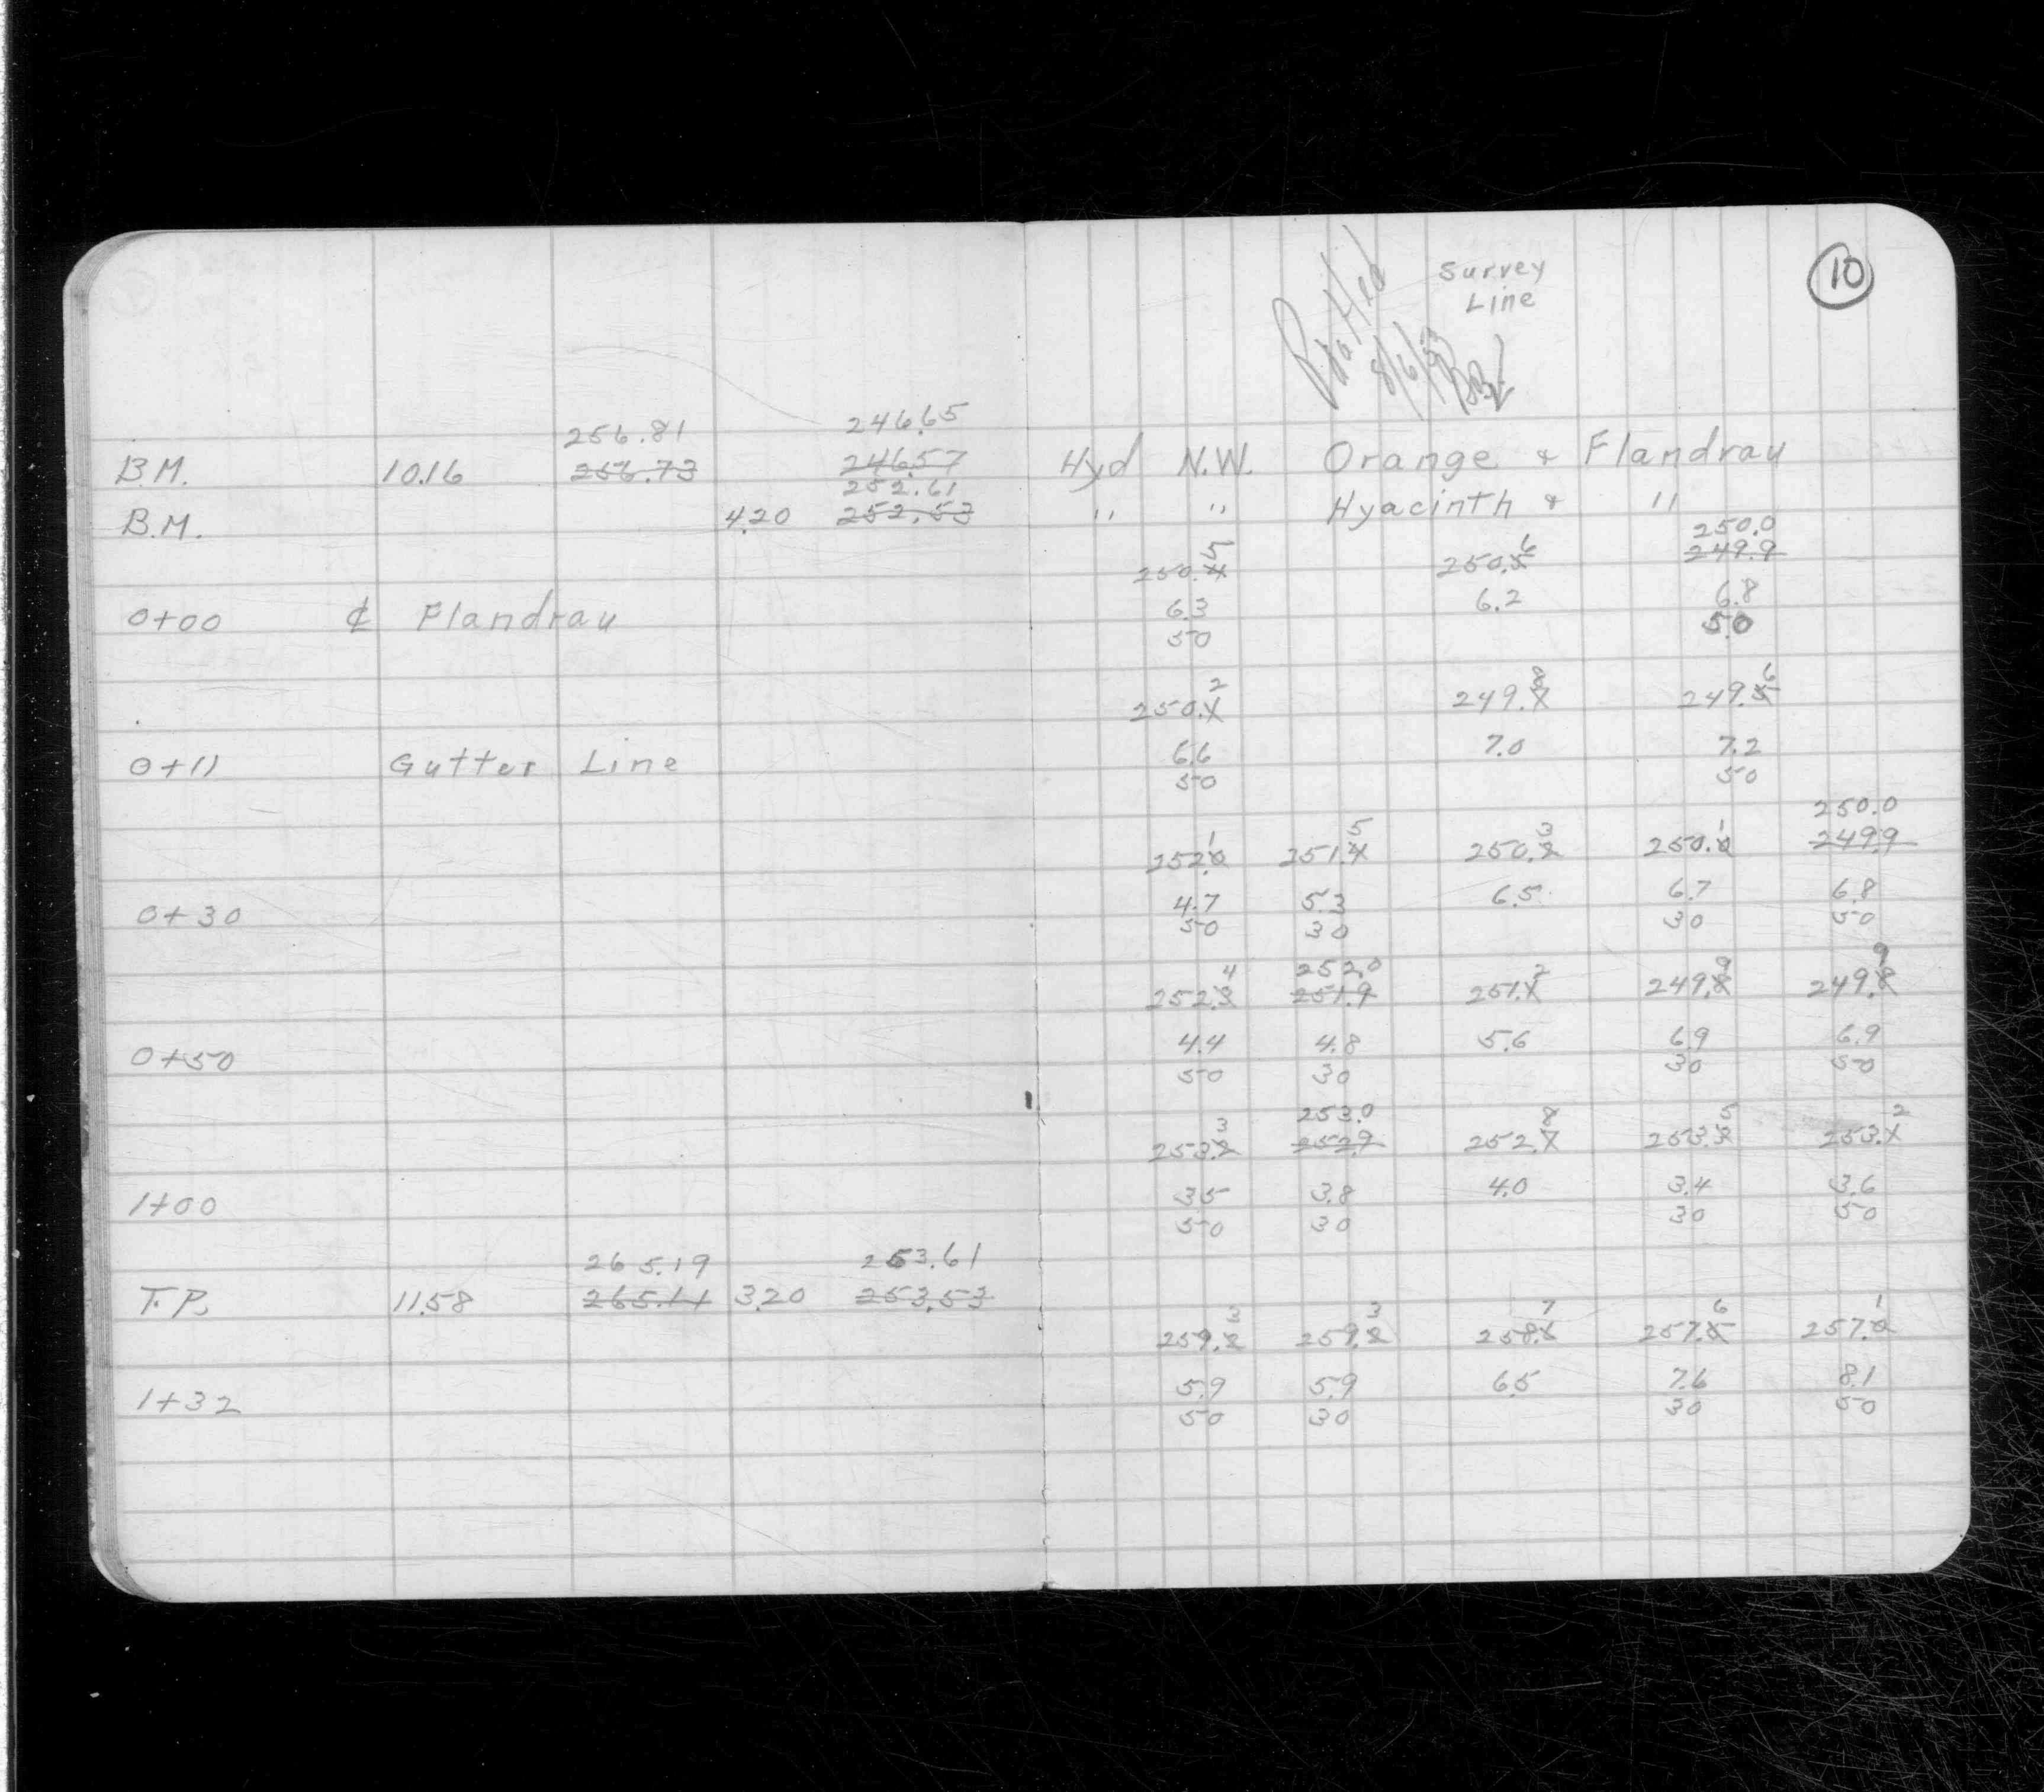 Survey
Line
10
Plotted
8/6/53
256.81 246.65
B.M. 10.16 256.73 246.57 Hyd N.W. Orange & Flandrau
252.61
B.M. 4.20 252.53 " " Hyacinth & "
250.0
5 6 249.9
250.4 250.5
0+00 ₵ Flandrau 6.3 6.2 6.8
50 50
2 8 6
250.1 249.7 249.5
0+11 Gutter Line 6.6 7.0 7.2
50 50
250.0
1 5 3 1
252.0 251.4 250.2 250.0 249.9
0+30 4.7 5.3 6.5 6.7 6.8
50 30 30 50
4 252.0 2 9 9
252.3 251.9 251.1 249.8 249.8
0+50 4.4 4.8 5.6 6.9 6.9
50 30 30 50
3 253.0 8 2
253.2 252.9 252.7 253.3 253.1
1+00 3.5 3.8 4.0 3.4 3.6
50 30 30 50
265.19 253.61
T.P. 11.58 265.11 3.20 253.53
3 3 7 6 1
259.2 259.2 258.6 257.5 257.0
1+32 5.9 5.9 6.5 7.6 8.1
50 30 30 50